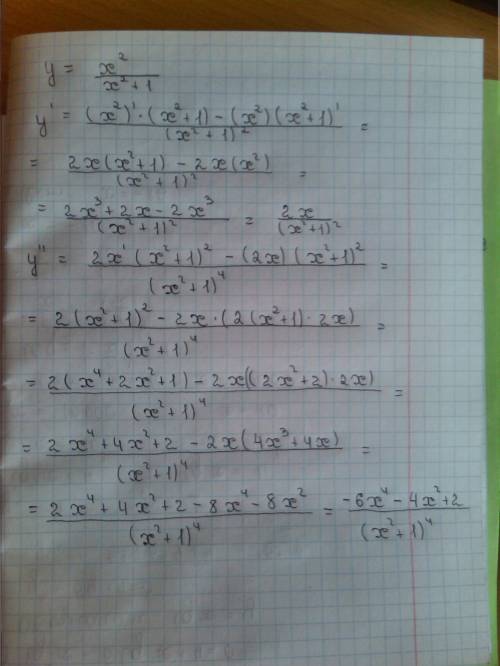 y = x² / (x² + 1)
y' = ((x²)' · (x² + 1) - (x²)(x² + 1)') / (x² + 1)² =
= (2x(x² + 1) - 2x(x²)) / (x² + 1)² =
= (2x³ + 2x - 2x³) / (x² + 1)² = 2x / (x² + 1)²
y'' = (2x' (x² + 1)² - (2x)(x² + 1)²) / (x² + 1)⁴ =
= (2(x² + 1)² - 2x · (2(x² + 1) · 2x)) / (x² + 1)⁴ =
= (2(x⁴ + 2x² + 1) - 2x((2x² + 2) · 2x)) / (x² + 1)⁴ =
= (2x⁴ + 4x² + 2 - 2x(4x³ + 4x)) / (x² + 1)⁴ =
= (2x⁴ + 4x² + 2 - 8x⁴ - 8x²) / (x² + 1)⁴ = (-6x⁴ - 4x² + 2) / (x² + 1)⁴